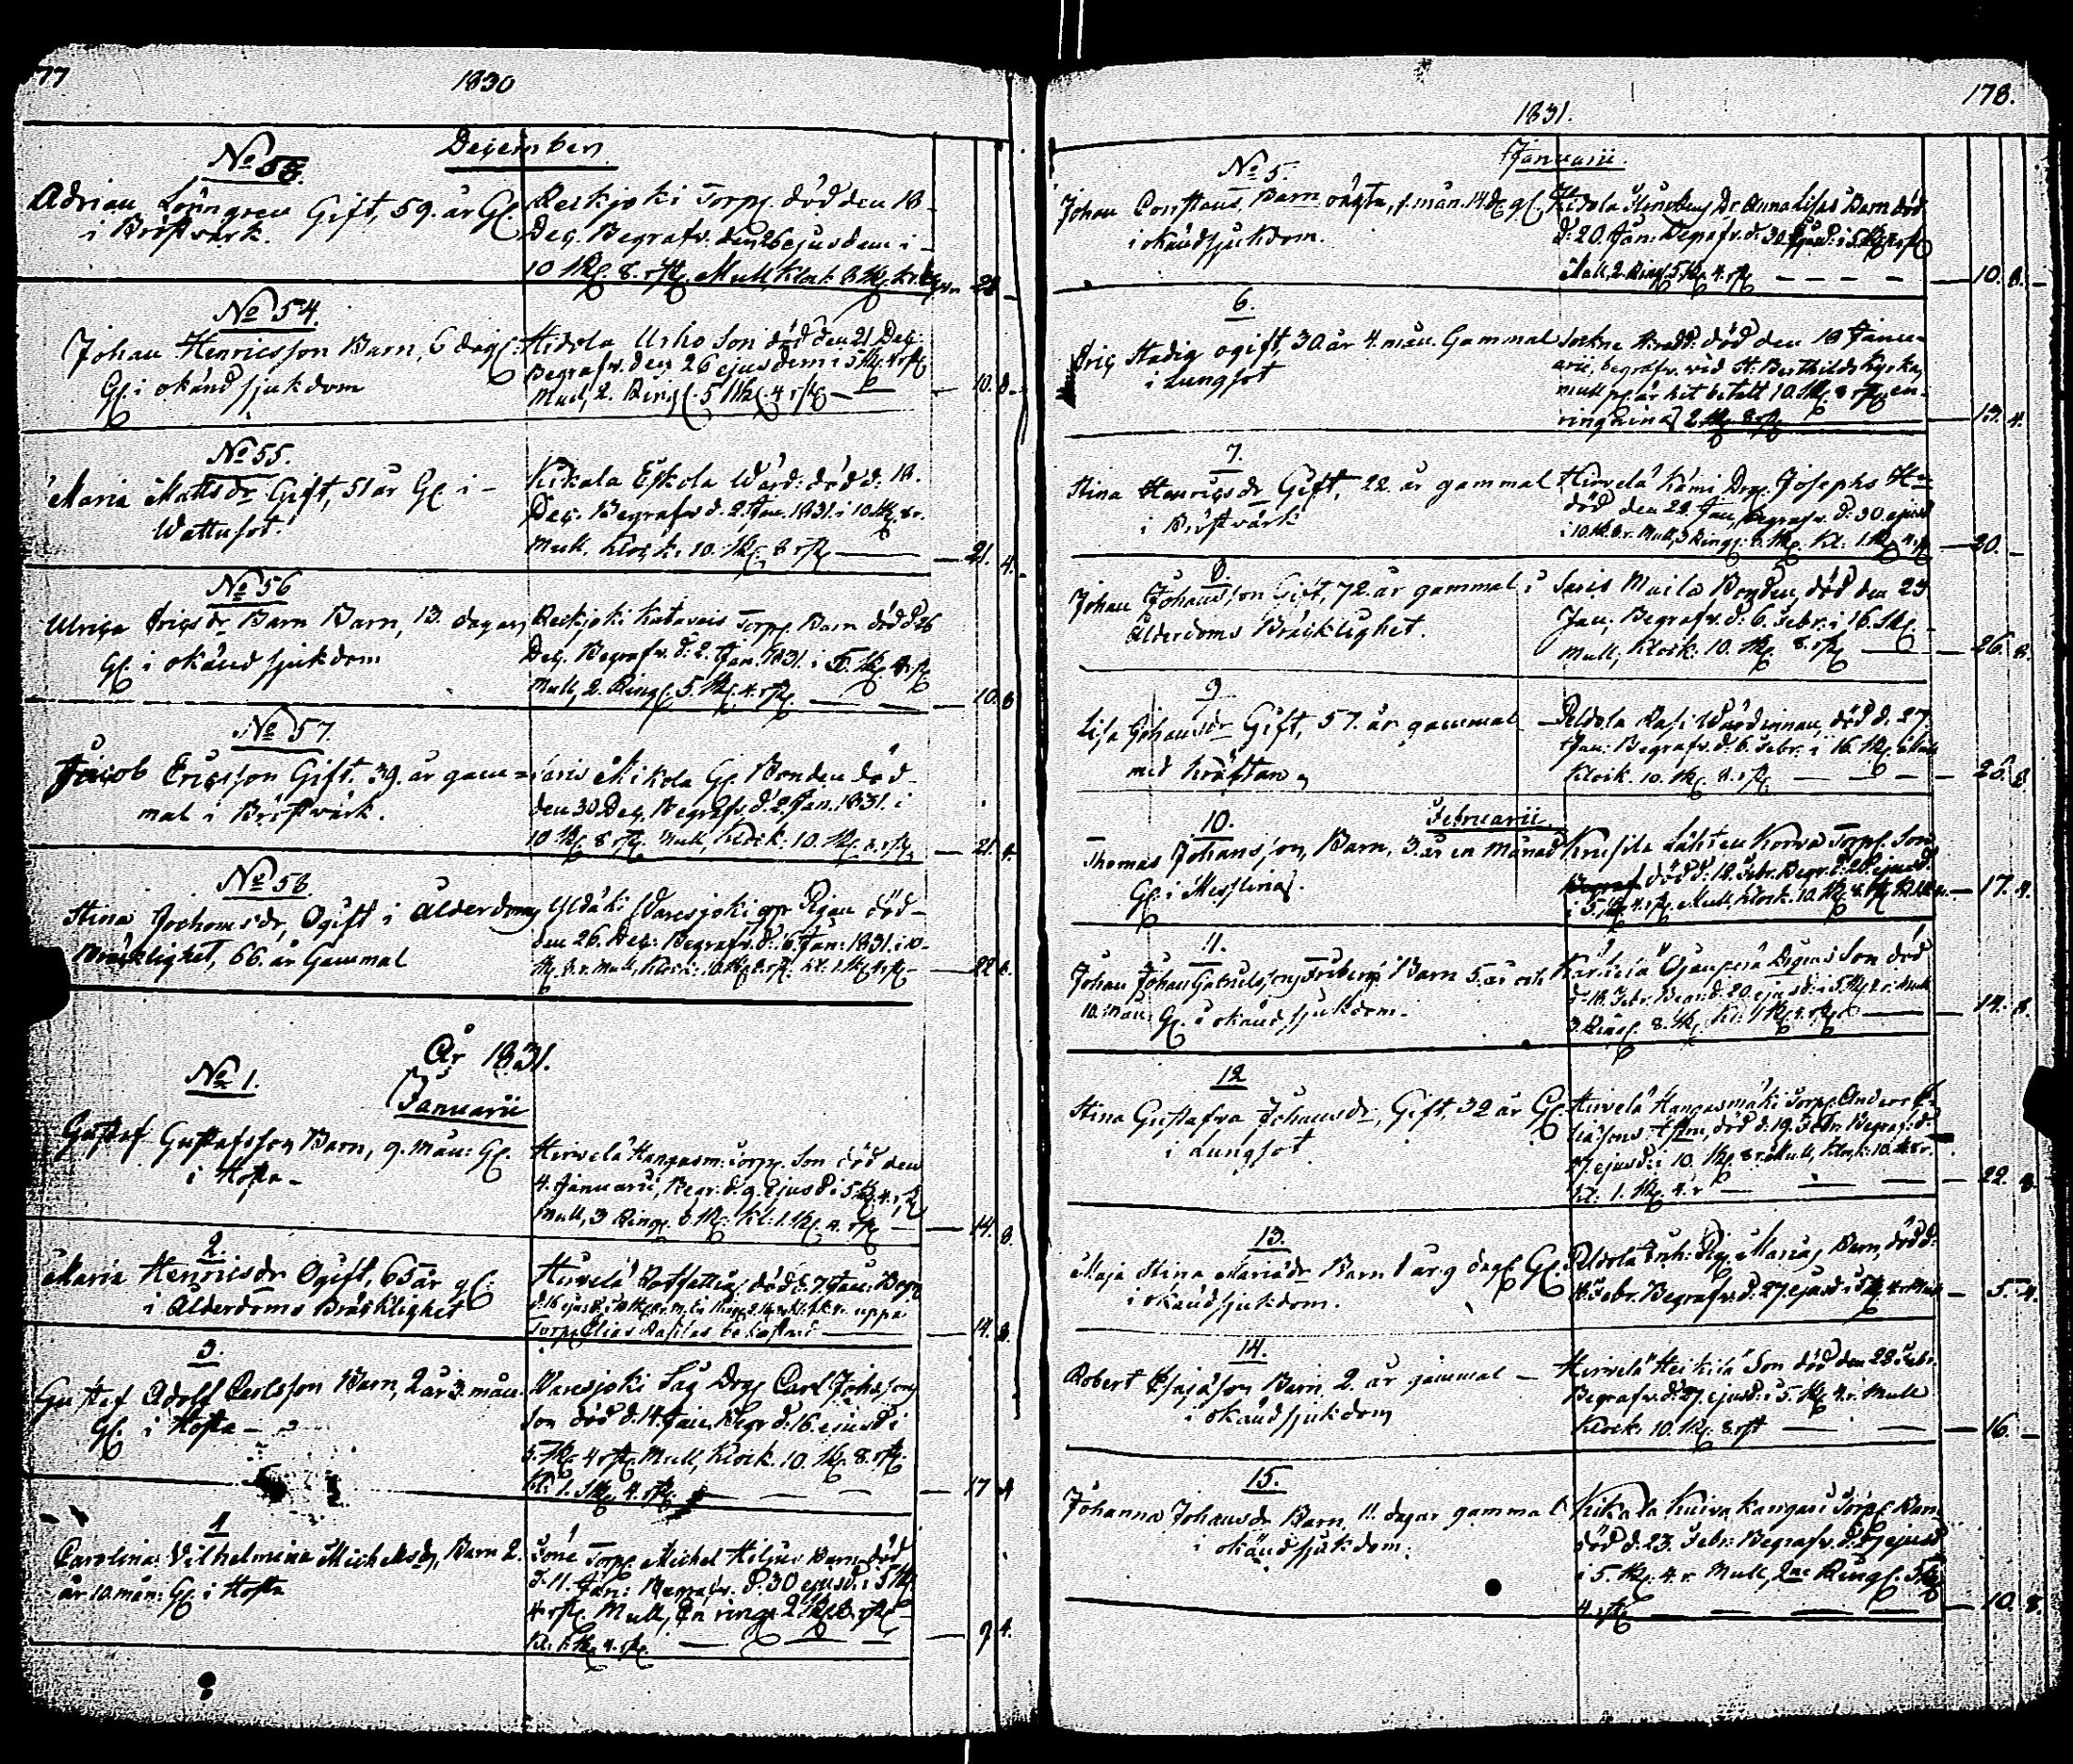 77
1830
December
No 53.
Adrian Lönngren Gift, 59. år Gl.
i Bröstvärk.
Reskjoki Torp. död den 18
Dec. Begrafv. den 26 ejusdem i
10 Sk. 8. rst. Mull, Klock. 8 Sk.
21
No 54.
Johan Henricsson Barn, 6 dag.
Gl. i okänd sjukdom
Hidola Urho Son död den 21 Dec.
Begrafv. den 26 ejusdem i 5 Sk. 4 rst
Mull, 2. Ring. 5 Sk. 4 rst
10. 8.
No 55.
Maria Matts dr Gift, 51 år Gl. i
Wattusot.
Kikala Eskola Wärd: död d: 18.
Dec. Begrafv d. 2. Jan. 1831. i 10 Sk. 8 r.
Mull, Klock. 10. Sk. 8 rst
21. 4.
No 56
Ulrica Erics dr Barn Barn, 13. dagar
Gl. i okänd sjukdom
Reskjoki Katavais Torp. Barn död d 26
Dec. Begrafv. d. 2. Jan. 1831. i 5. Sk. 4 rst
Mull, 2. Ring. 5. Sk. 4. rst.
10. 8
No 57.
Jacob Ericsson Gift. 39. år gam=
mal i Bröstvärk.
Saris Mikola Gl. Bonden död
den 30 Dec. Begrafv. d. 2. Jan. 1831. i
10 Sk. 8 rst. Mull, Klock: 10. Sk. 8. rst.
21. 4.
No 58.
Stina Jochoms dr, Ogift i Ålderdoms
Bräcklighet, 66. år Gammal
Yldäki Waresjoki Pigan död
den 26. Dec: Begrafv. d: 6 Jan: 1831. i 10
Sk. 8. r. Mull, Klock: 10. Sk. 8. rst. Kl: 1. Sk. 4 rst
22. 8.
År 1831.
Januarii
No 1.
Gustaf Gustafsson Barn, 9. Mån: Gl.
i Hosta
Hirvelä Hangasm. Torp. Son död den
4. Januarii, Begr. d. 9. ejusd i 5 Sk. 4. r
Mull, 3 Ring. 8. Sk. Kl: 1. Sk. 4. rst
14. 8.
2.
Maria Henrics dr Ogift, 65 år gl.
i Ålderdoms Bräcklighet
Hirvelä död d. 7. Jan: Begr
d. 16 ejusd: uppå
Torp. Elias Rasilas bekostnad
14. 8.
3.
Gustaf Adolf Carlsson Barn, 2 år 3. mån.
Gl. i Hosta
Waresjoki Såg Dräng Carl Johssons
Son död d. 14. Jan. Begr d: 16. ejusd i
5. Sk. 4 rst. Mull, Klock. 10. Sk. 8. rst.
Kl: 1. Sk. 4. rst.
17 4
4
Carolina Vilhelmina Michels dr, Barn 2.
år 10. mån: Gl. i Hosta
Torp. Michel Barn död
d. 11. Jan: Begrafv. d. 30 ejusd: i 5 Sk.
4 rst. Mull, En ring. 2 Sk. 8 rst
Kl. 1. Sk. 4. rst.
9 4.
178.
1831.
Januarii.
No 5.
Johan Constans, Barn oägta, 1. mån. 14 d. gl,
i okänd sjukdom.
Hidola Dr. Anna Lisas Barn död
d: 20. Jan: Begrafv. d: 30 ejusd: i 5 Sk. 4 rst
Mull, 2. Ring. 5 Sk. 4. rst
10. 8.
6.
Eric Stadig ogift, 30 år 4. mån. Gammal
i Lungsot
död den 19 Janu-
arii, begrafv. vid St: Berthilds Kyrka,
mull p. är hit betalt 10. Sk. 8 rst en
ringning 2 Sk. 8 rst
13. 4.
7.
Stina Henrics dr Gift, 22. år gammal
i Bröstvärk
Hirvelä Kämi Drg. Josephs H
död den 22. Jan, Begrafv. d: 30 ejusd
i 10. Sk. 8 r. Mull, 3 Ring: 8. Sk. Kl: 1. Sk. 4. rst
20.
8
Johan Johansson Gift, 72. år gammal i
Ålderdoms Bräcklighet.
Saris Muila Bonden, död den 23
Jan, Begrafv. d: 6. Febr: i 16. Sk.
Mull, Klock: 10. Sk. 8. rst
26. 8.
9
Lisa Johans dr Gift, 57. år gammal
med Kräftan
Peldola Rasi Wärdinnan, död d. 27
Jan: Begrafv. d. 6. Febr: i 16. Sk. Mull
Klock. 10. Sk. 8. rst
26. 8
Februarii
10.
Thomas Johansson, Barn, 3. år en Månad
Gl. i Messling.
Krusila Lähteen Korva Torp. Son
död d: 12. Febr. Begr. d: 20 ejusd
i 5. Sk. 4. rst. Mull, Klock. 10. Sk. 8. rst
17. 4.
11.
Johan Johan Gabrielsson Fribergs Barn 5. år och
10. Mån: Gl. i okänd sjukdom.
Kärkelä Ojanperä Pigans Son död
d. 16. Febr. Begr d: 20. ejusd: i 5. Sk. Mull
3 Ring. 8. Sk. Kl: 1 Sk. 4. rst
14. 8.
12
Stina Gustafva Johans dr, Gift, 32 år Gl.
i Lungsot
Hirvelä Hangasmäki Torp. Anders E-
liæsons Hustru, död d: 19. Febr. Begraf: d:
27 ejusd: i 10. Sk. 8 r. Mull, Klock. 10. Sk. 8 r.
Kl: 1. Sk. 4. r
22. 8.
13.
Maja Stina Mariæ dr Barn 1 år 9 dag. Gl.
i okänd sjukdom.
Peldola Inh: Pig. Marias Barn, död d:
Febr. Begrafv. d: 27. ejusd i 5 Sk. 4 r Mull
5. 4.
14.
Robert Esajæson Barn, 2. år gammal
i okänd sjukdom
Hirvelä Heikilä Son död den 23 Febr.
Begrafv. d. 27. ejusd: i 5. Sk. 4. r. Mull
Klock. 10. Sk. 8. rst
16.
15.
Johanna Johans dr Barn, 11. dagar gammal
i okänd sjukdom.
Kikala Kuiva kangas Torp. Barn
död d. 23. Febr: Begrafv. d. 27 ejusd
i 5. Sk. 4. r Mull, 2ne Ring. 5 Sk
4 rst
10. 8.